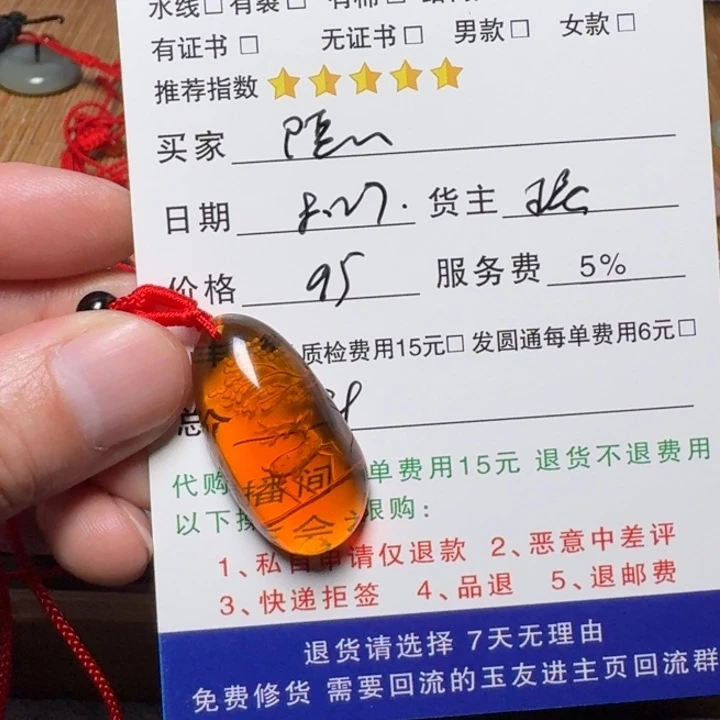 水线□ 有裂□ 有棉□
有证书 □ 无证书 □ 男款□ 女款□
推荐指数
买家
日期 货主
价格 95 服务费 5%
质检费用15元□ 发圆通每单费用6元□
总价
代购 播间 单费用15元 退货不退费用
以下 会 限购:
1、私自申请仅退款 2、恶意中差评
3、快递拒签 4、品退 5、退邮费
退货请选择 7天无理由
免费修货 需要回流的玉友进主页回流群